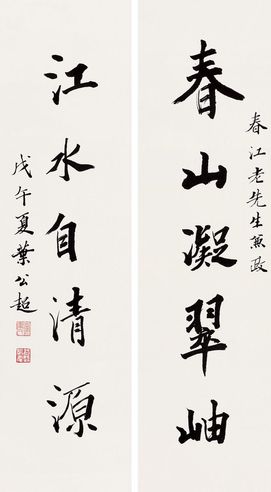 春江老先生兼政
春山凝翠岫
江水自清源
戊午夏葉公超